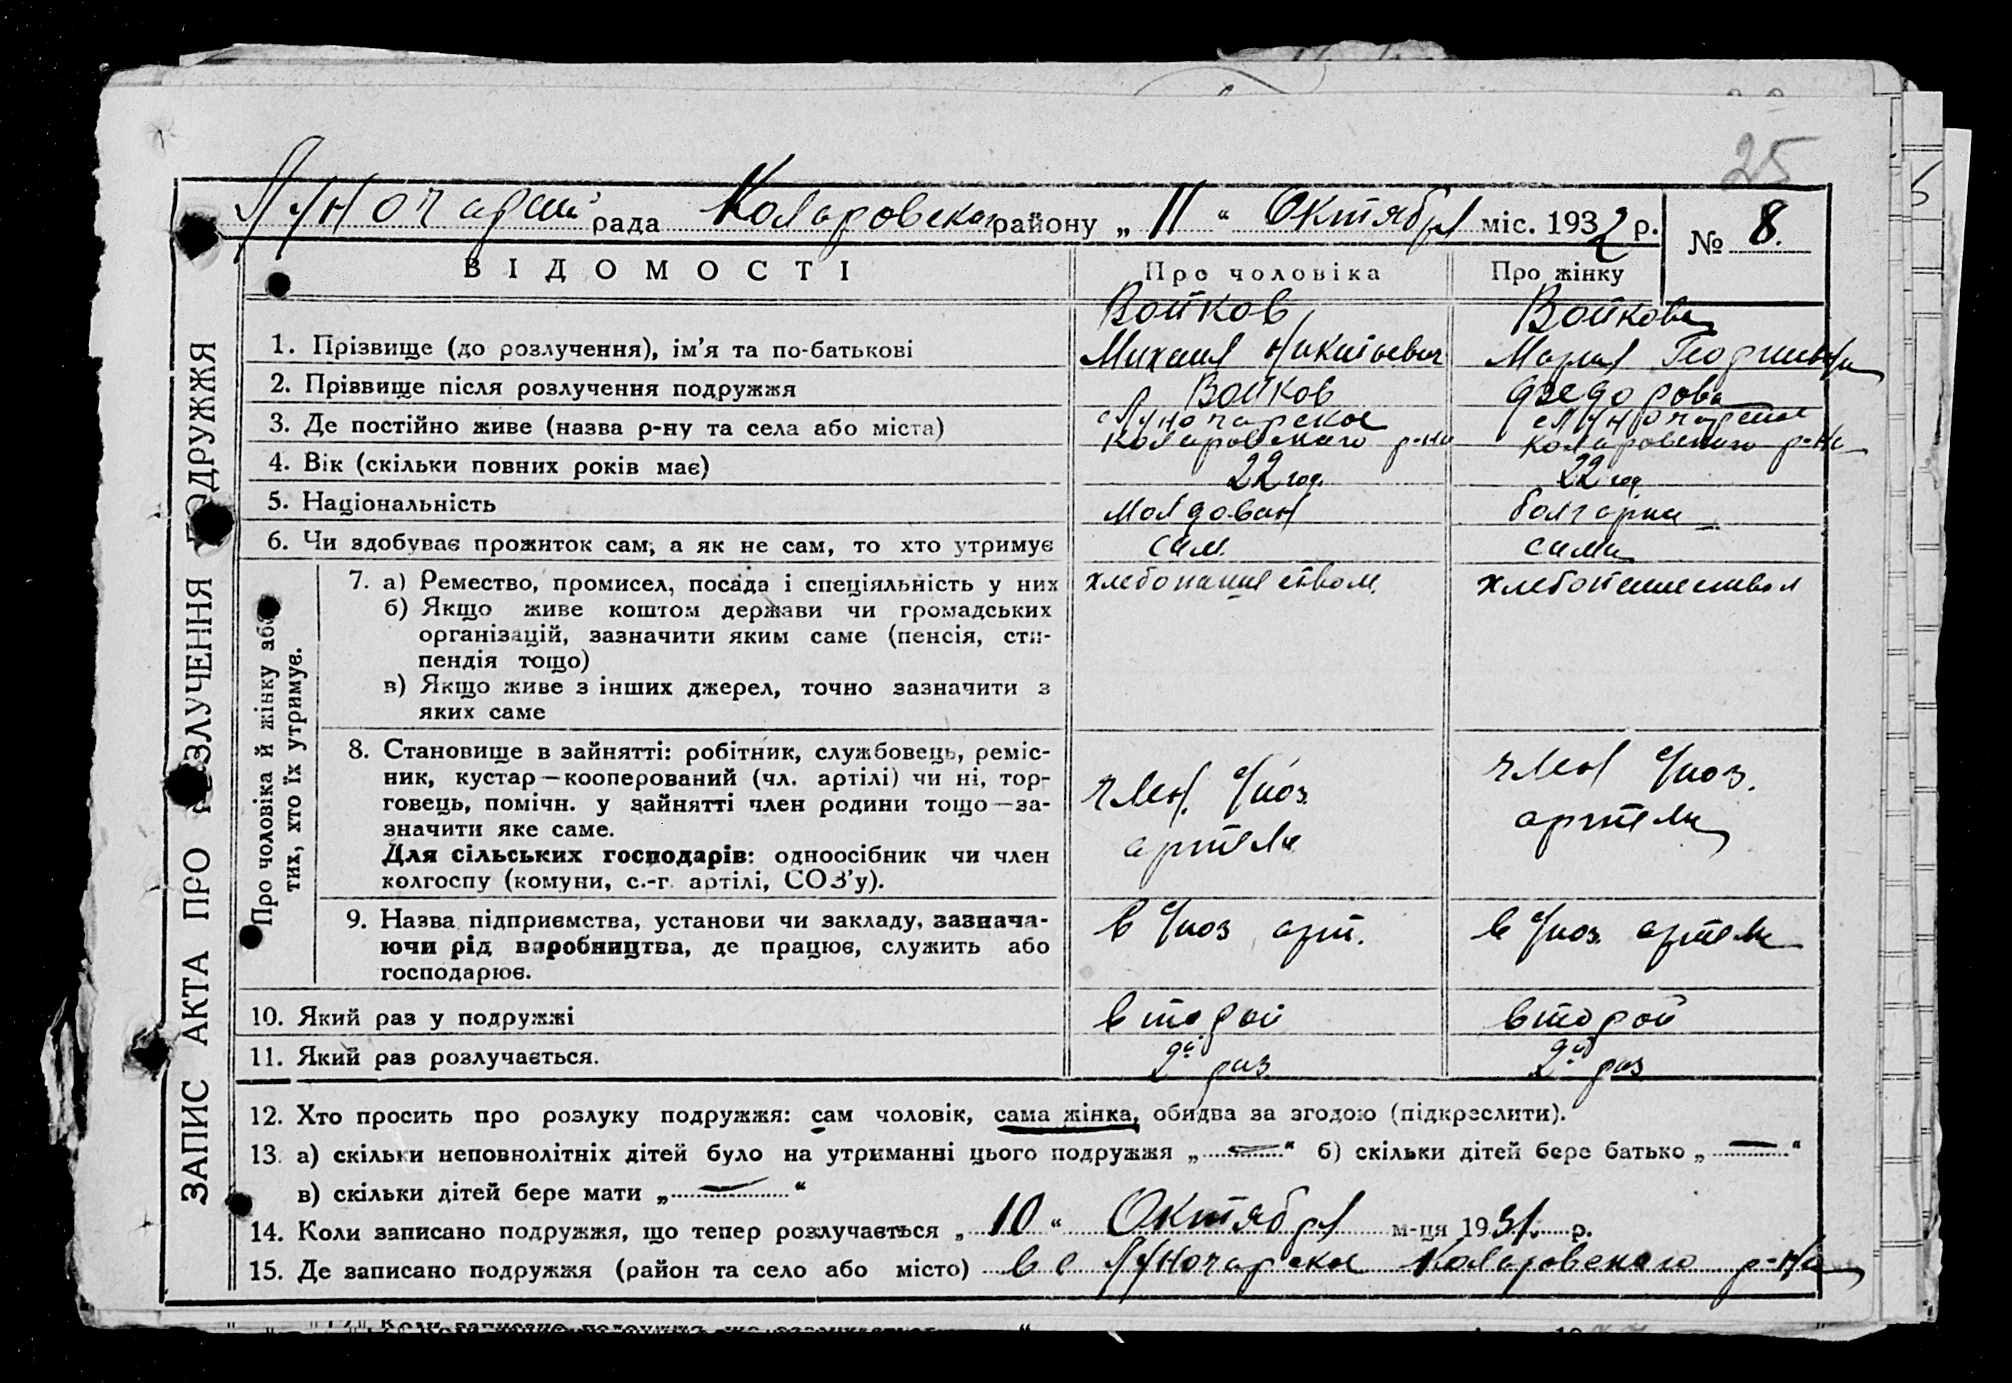 25
Луночарский рада Коларовского району „ 11 “ Октября міс. 1932 р.
№ 8.
ВІДОМОСТІ Про чоловіка Про жінку
ЗАПИС АКТА ПРО РОЗЛУЧЕННЯ ПОДРУЖЖЯ
Войков Войкова
1. Прізвище (до розлучення), ім'я та по-батькові Михаил Никитьевич Мария Георгиевна
2. Прізвище після розлучення подружжя Войков Федорова
3. Де постійно живе (назва р-ну та села або міста) с Луночарское Коларовского р-на с Луночарское Коларовского р-на
4. Вік (скільки повних років має) 22 год. 22 год
5. Національність молдован болгарка
6. Чи здобуває прожиток сам, а як не сам, то хто утримує сам. сама
Про чоловіка й жінку або тих, хто їх утримує.
7. а) Ремество, промисел, посада і спеціяльність у них хлебопашеством. хлебопашеством
б) Якщо живе коштом держави чи громадських
організацій, зазначити яким саме (пенсія, сти-
пендія тощо)
в) Якщо живе з інших джерел, точно зазначити з
яких саме
8. Становище в зайнятті: робітник, службовець, реміс-
ник, кустар—кооперований (чл. артілі) чи ні, тор-
говець, помічн. у зайнятті член родини тощо—за-
значити яке саме.
Для сільських господарів: одноосібник чи член
колгоспу (комуни, с.-г. артілі, СОЗ'у).
член с/хоз. артели член с/хоз. артели
9. Назва підприємства, установи чи закладу, зазнача-
ючи рід виробництва, де працює, служить або
господарює.
в с/хоз арт. в с/хоз. артели
10. Який раз у подружжі второй второй
11. Який раз розлучається. 2й раз 2й раз
12. Хто просить про розлуку подружжя: сам чоловік, сама жінка, обидва за згодою (підкреслити).
13. а) скільки неповнолітніх дітей було на утриманні цього подружжя „ — “ б) скільки дітей бере батько „ — “
в) скільки дітей бере мати „ — “
14. Коли записано подружжя, що тепер розлучається „ 10 “ Октября м-ця 1931. р.
15. Де записано подружжя (район та село або місто) в с Луночарское Коларовского р-на